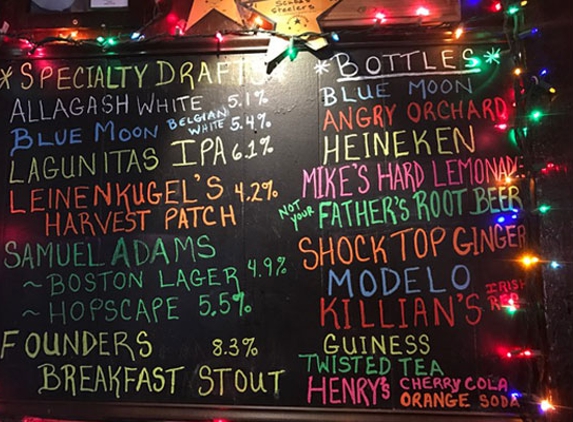 *SPECIALTY DRAFTS
ALLAGASH WHITE 5.1%
BLUE MOON BELGIAN WHITE 5.4%
LAGUNITAS IPA 6.1%
LEINENKUGEL'S 4.2%
HARVEST PATCH
SAMUEL ADAMS
~BOSTON LAGER 4.9%
~HOPSCAPE 5.5%
FOUNDERS 8.3%
BREAKFAST STOUT
*BOTTLES*
BLUE MOON
ANGRY ORCHARD
HEINEKEN
MIKE'S HARD LEMONADE
NOT YOUR FATHER'S ROOT BEER
SHOCK TOP GINGER
MODELO
KILLIAN'S IRISH RED
GUINESS
TWISTED TEA
HENRY'S CHERRY COLA
ORANGE SODA